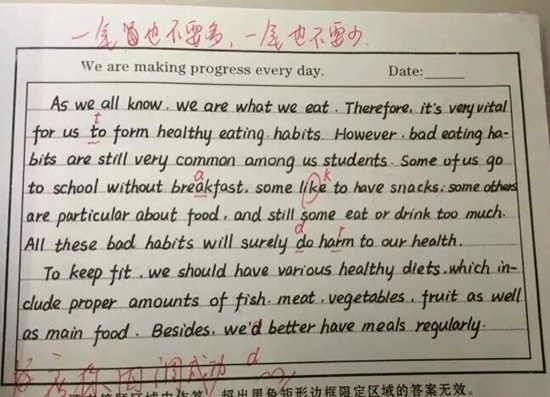 一笔也不要多,一笔也不要少.
We are making progress every day. Date:
As we all know, we are what we eat. Therefore, it's very vital
t
for us to form healthy eating habits. However, bad eating ha-
bits are still very common among us students. Some of us go
a k
to school without breakfast, some like to have snacks; some others
are particular about food, and still some eat or drink too much.
d r
All these bad habits will surely do harm to our health.
To keep fit, we should have various healthy diets, which in-
clude proper amounts of fish, meat, vegetables, fruit as well
as main food. Besides, we'd better have meals regularly.
d
答题区域内作答,超出黑色矩形边框限定区域的答案无效。